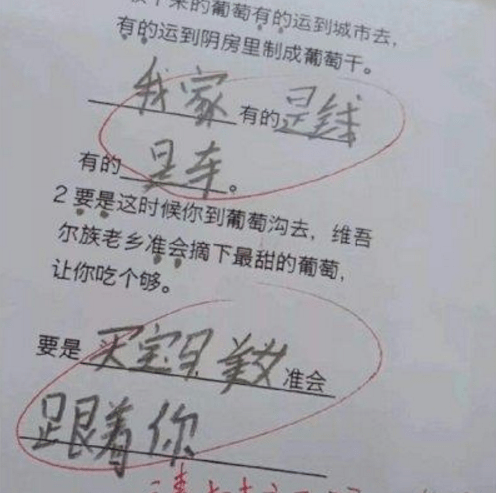 来的葡萄有的运到城市去,
有的运到阴房里制成葡萄干。
我家有的是钱
有的是车。
2 要是这时候你到葡萄沟去，维吾
尔族老乡准会摘下最甜的葡萄，
让你吃个够。
要是买宝马美女准会
跟着你